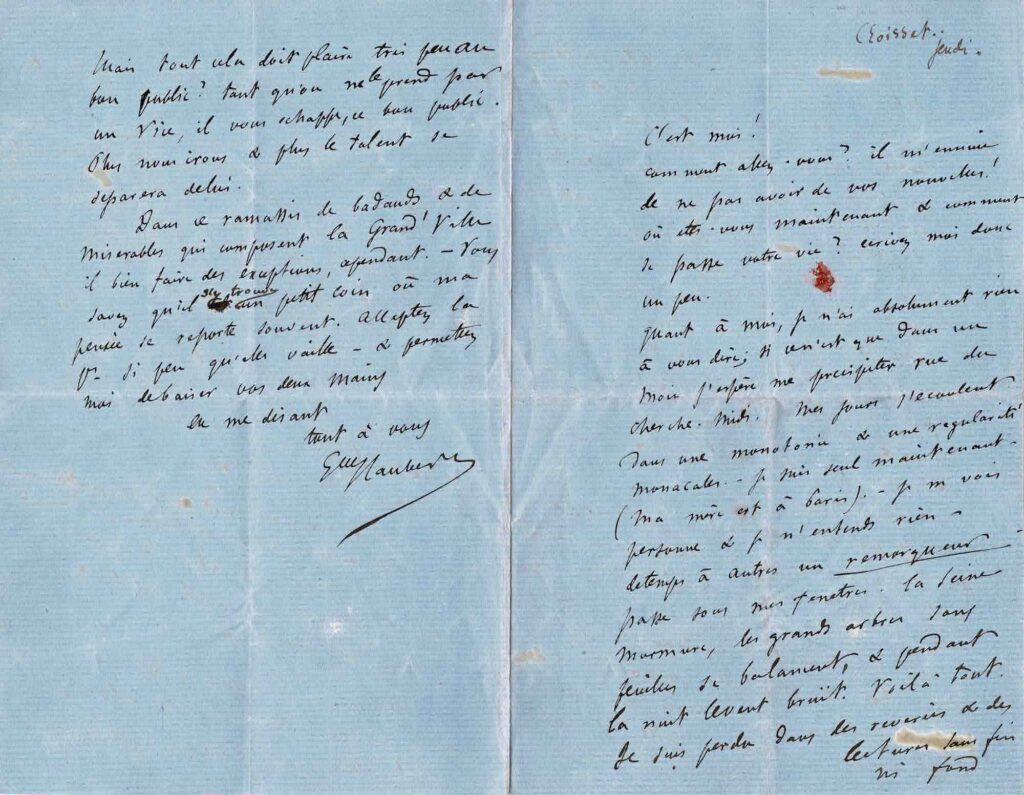 Croisset.
Jeudi.
C'est moi!
comment allez-vous? il m'ennuie
de ne pas avoir de vos nouvelles!
où etes-vous maintenant & comment
se passe votre vie? ecrivez moi donc
un peu.
quant à moi, je n'ai absolument rien
à vous dire; si ce n'est que dans un
mois j'espère me precipiter rue du
cherche-midi. Mes jours s'ecoulent
dans une monotonie & une regularité
monacales - je suis seul maintenant -
(ma mère est à Paris). - je ne vois
personne & je n'entends rien -
de temps à autres un remorqueur
passe sous mes fenetres. la Seine
murmure, les grands arbres sans
feuilles se balancent, & pendant
la nuit le vent bruit. Voilà tout.
Je suis perdu dans des reveries & des
lectures sans fin
ni fond
Mais tout cela doit plaire très peu au
bon public? tant qu'on ne le prend par
un Vice, il vous echappe, ce bon public.
Plus nous irons & plus le talent se
separera de lui.
Dans ce ramassis de badauds & de
miserables qui composent la Grand' Ville
il bien faire des exceptions, cependant. - Vous
savez qu'il s'y trouve un petit coin où ma
pensée se reporte souvent. Acceptez la
pr si peu qu'elle vaille - & permettez
moi de baiser vos deux mains
en me disant
tout à vous
Gve Flaubert